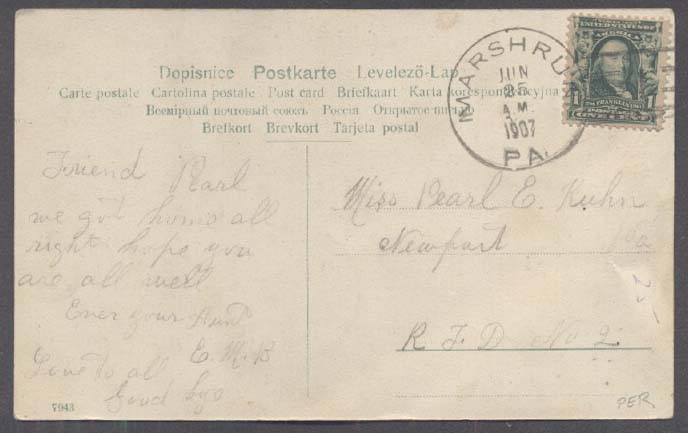 Dopisnice Postkarte Levelező-Lap
Carte postale Cartolina postale Post card Briefkaart Karta korespondencyjna
Всемірный почтовый союзъ Россія Открытое письмо
Brefkort Brevkort Tarjeta postal
MARSHRU
JUN
25
A.M.
1907
PA.
UNITED STATES OF
AMERICA
1 FRANKLIN 1
POSTAGE
ONE CENT
Friend Pearl
we got home all
right hope you
are all well
Ever your Aunt
E. M. B
Love to all
Good bye
Miss Pearl E. Kuhn
Newport Pa
R F D No 2
25
PER
7943